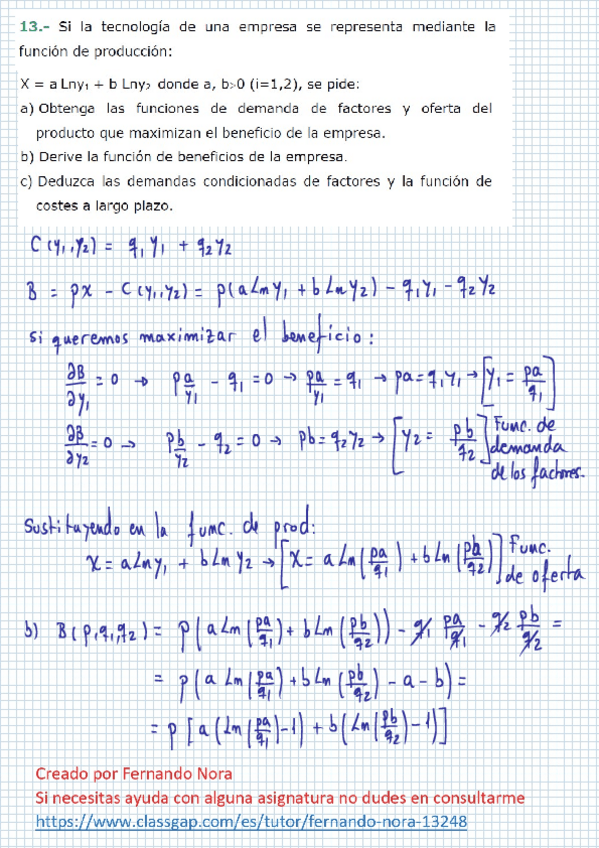 13.- Si la tecnología de una empresa se representa mediante la
función de producción:
X = a Lny₁ + b Lny₂ donde a, b>0 (i=1,2), se pide:
a) Obtenga las funciones de demanda de factores y oferta del
producto que maximizan el beneficio de la empresa.
b) Derive la función de beneficios de la empresa.
c) Deduzca las demandas condicionadas de factores y la función de
costes a largo plazo.
C(y₁,y₂) = q₁y₁ + q₂y₂
B = px - C(y₁,y₂) = p(a Ln y₁ + b Ln y₂) - q₁y₁ - q₂y₂
Si queremos maximizar el beneficio:
∂B/∂y₁ = 0 → pa/y₁ - q₁ = 0 → pa/y₁ = q₁ → pa = q₁y₁ → [y₁ = pa/q₁]
∂B/∂y₂ = 0 → pb/y₂ - q₂ = 0 → pb = q₂y₂ → [y₂ = pb/q₂] Func. de demanda de los factores.
Sustituyendo en la func. de prod:
x = a Ln y₁ + b Ln y₂ → [x = a Ln(pa/q₁) + b Ln(pb/q₂)] Func. de oferta
b) B(p,q₁,q₂) = p(a Ln(pa/q₁) + b Ln(pb/q₂)) - q₁ pa/q₁ - q₂ pb/q₂ =
= p(a Ln(pa/q₁) + b Ln(pb/q₂) - a - b) =
= p[a(Ln(pa/q₁) - 1) + b(Ln(pb/q₂) - 1)]
Creado por Fernando Nora
Si necesitas ayuda con alguna asignatura no dudes en consultarme
https://www.classgap.com/es/tutor/fernando-nora-13248